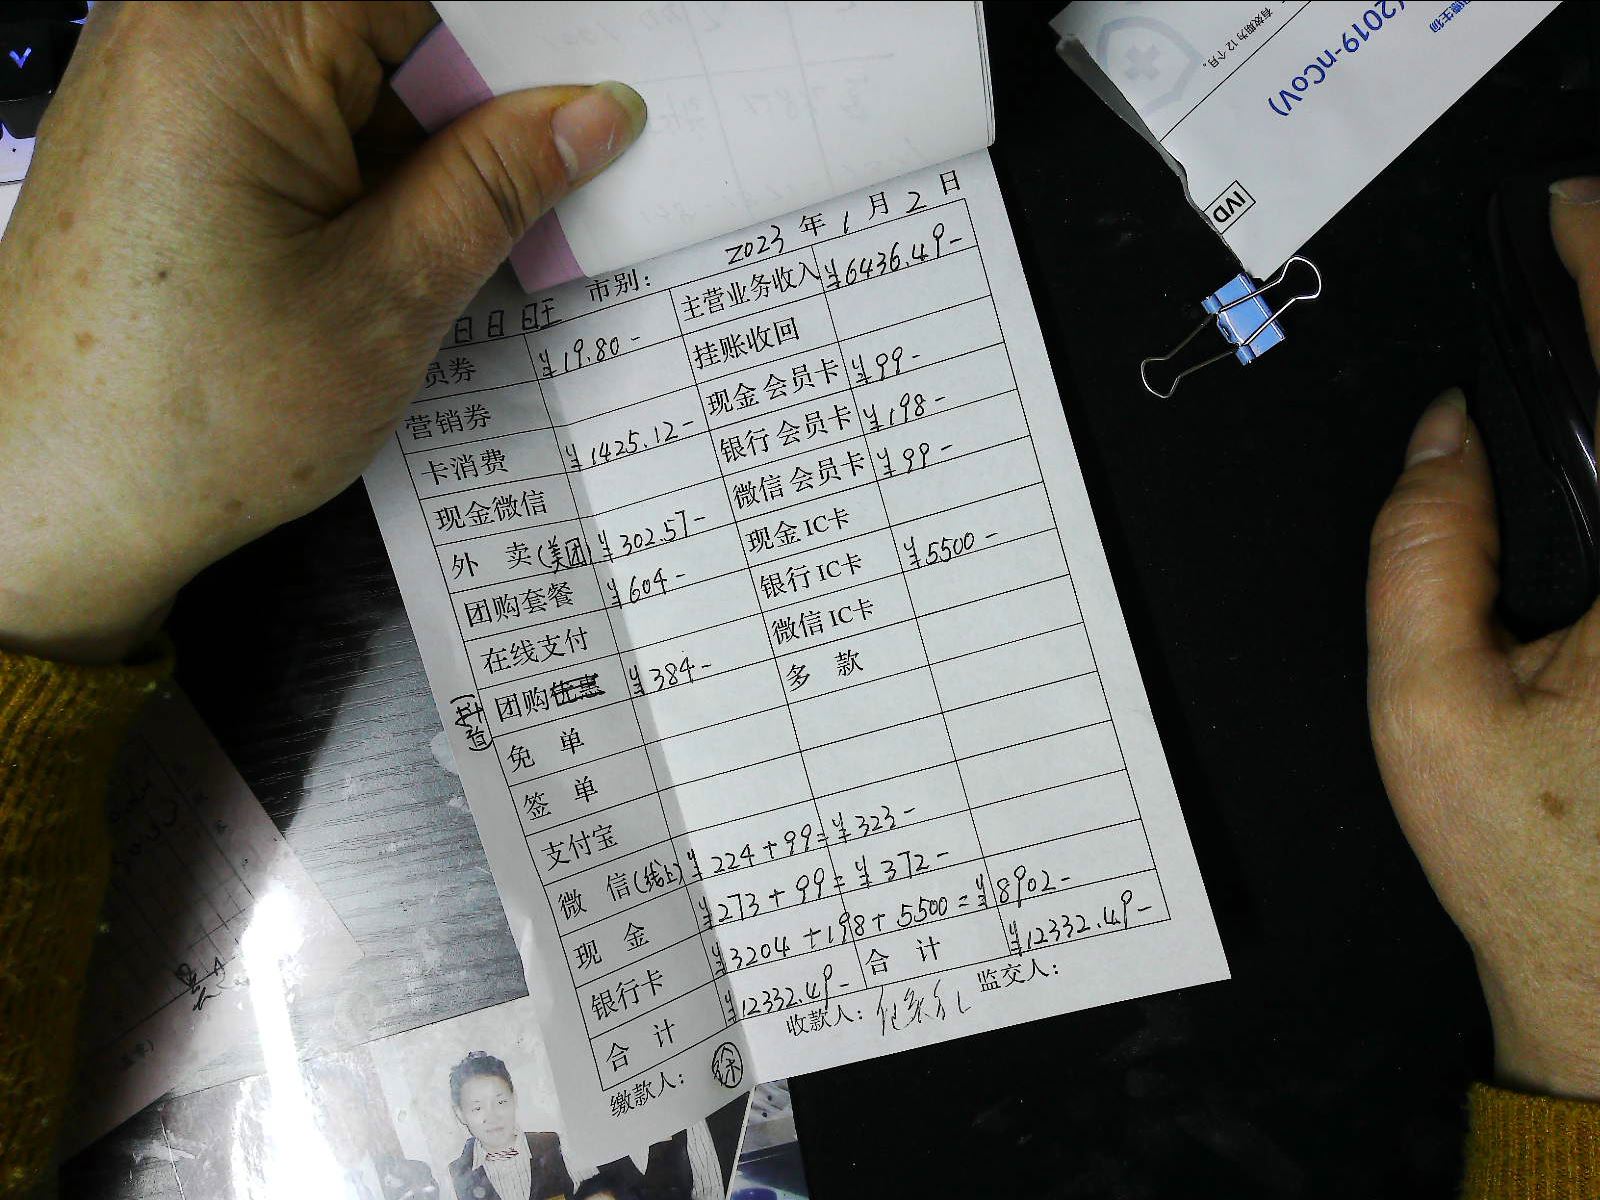 有效期为 12 个月。
(2019-nCoV)
IVD
2023 年 1 月 2 日
市别：
员券 ¥19.80- 主营业务收入 ¥6436.49-
营销券 挂账收回
卡消费 ¥1425.12- 现金会员卡 ¥99-
现金微信 银行会员卡 ¥198-
外 卖(美团) ¥302.57- 微信会员卡 ¥99-
团购套餐 ¥604- 现金IC卡
在线支付 银行IC卡 ¥5500-
(抖音) 团购 ¥384- 微信IC卡
免 单 多 款
签 单
支付宝
微 信(线上) ¥224+99=¥323-
现 金 ¥273+99=¥372-
银行卡 ¥3204+198+5500=¥8902-
合 计 ¥12332.49- 合 计 ¥12332.49-
缴款人： 徐 收款人： 监交人：